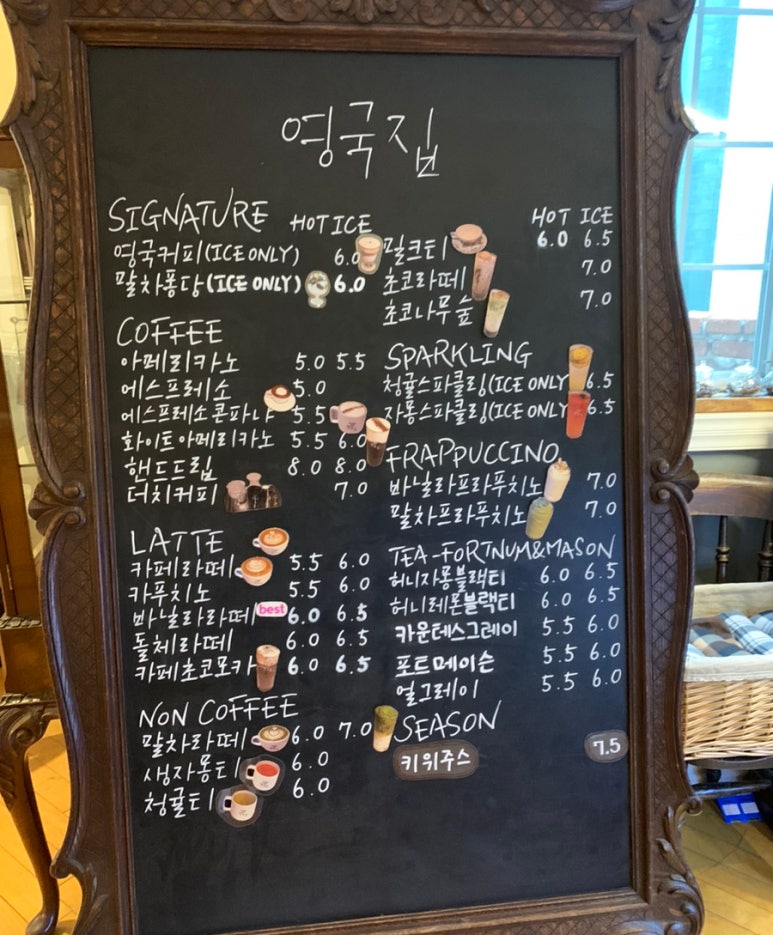 영국집
SIGNATURE HOT ICE
영국커피(ICE ONLY) 6.0
말차퐁당(ICE ONLY) 6.0
COFFEE
아메리카노 5.0 5.5
에스프레소 5.0
에스프레소콘파나 5.5
화이트아메리카노 5.5 6.0
핸드드립 8.0 8.0
더치커피 7.0
LATTE
카페라떼 5.5 6.0
카푸치노 5.5 6.0
바닐라라떼 best 6.0 6.5
돌체라떼 6.0 6.5
카페초코모카 6.0 6.5
NON COFFEE
말차라떼 6.0 7.0
생자몽티 6.0
청귤티 6.0
HOT ICE
밀크티 6.0 6.5
초코라떼 7.0
초코나무숲 7.0
SPARKLING
청귤스파클링(ICE ONLY 6.5
자몽스파클링(ICE ONLY 6.5
FRAPPUCCINO
바닐라프라푸치노 7.0
말차프라푸치노 7.0
TEA-FORTNUM&MASON
허니자몽블랙티 6.0 6.5
허니레몬블랙티 6.0 6.5
카운테스그레이 5.5 6.0
포트메이슨 5.5 6.0
얼그레이 5.5 6.0
SEASON
키위주스 7.5